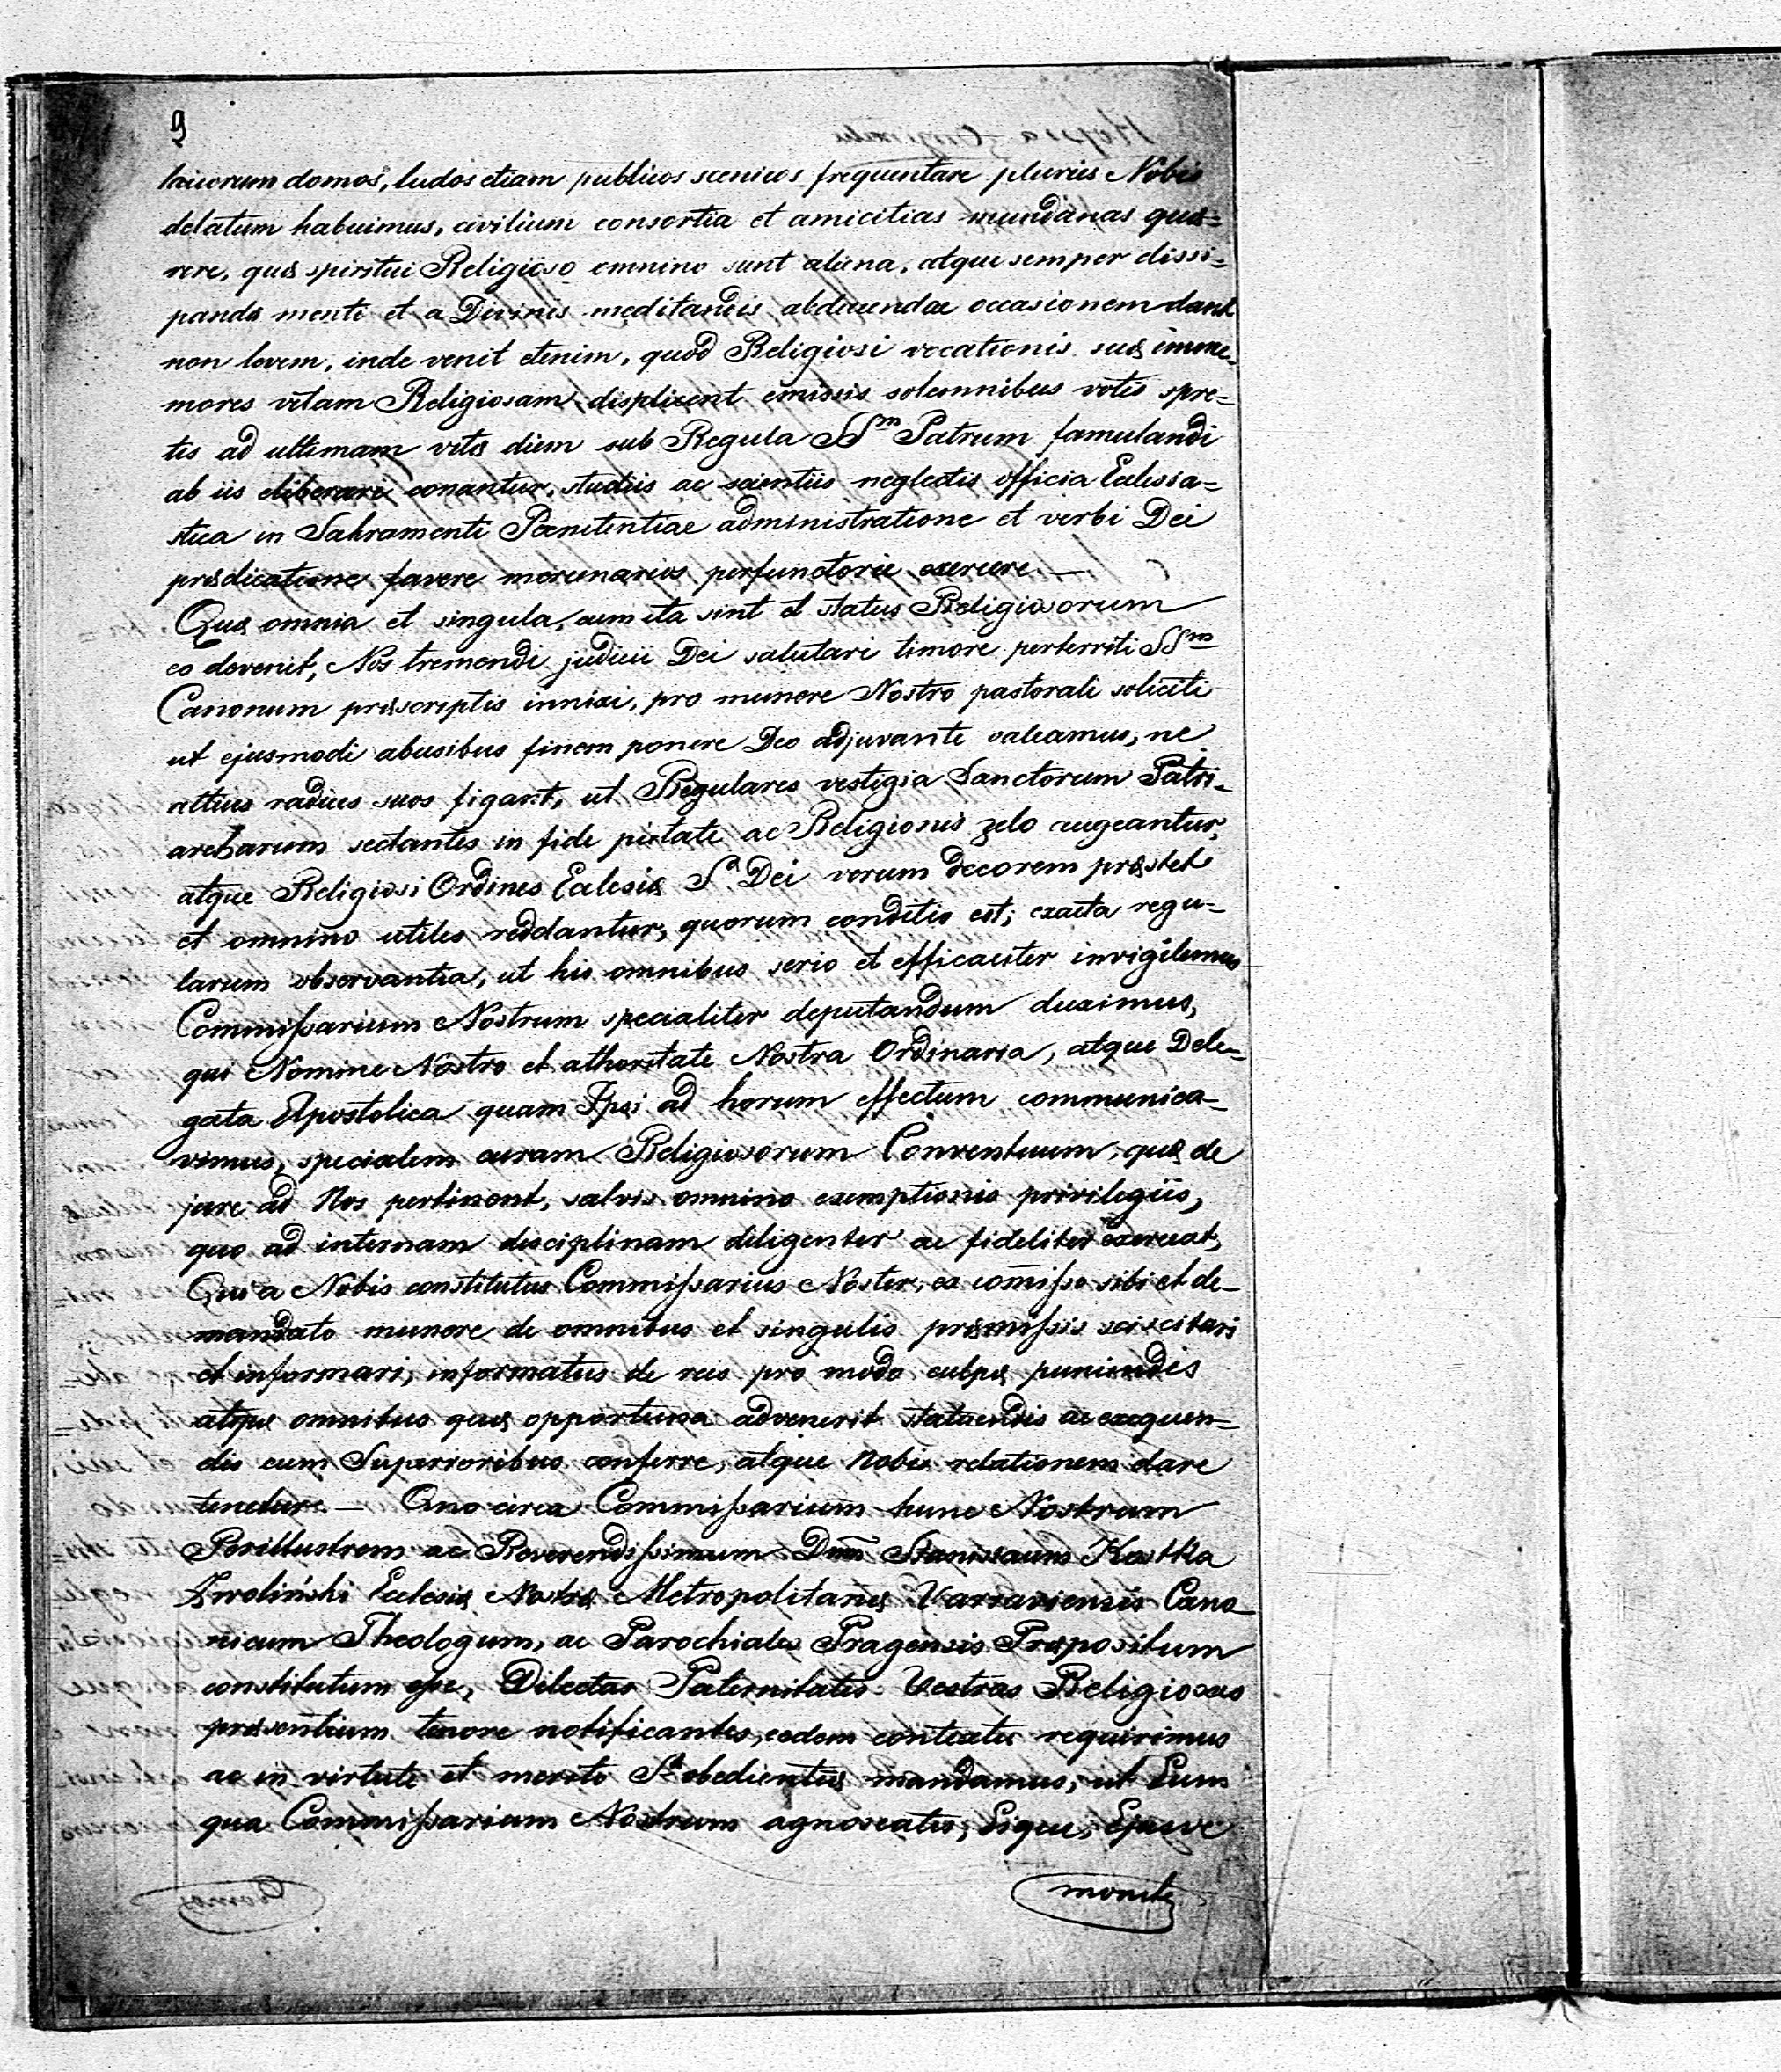 9
laicorum domos, ludos etiam publicos scenicos frequentare pluries Nobis
delatum habuimus, civilium consortia et amicitias mundanas quæ=
rere, quæ spiritui Religioso omnino sunt aliena, atque semper dissi=
pandæ menti et a Divinis meditandis abducendae occasionem dant
non levem, inde venit etenim, quod Religiosi vocationis suæ imme=
mores vitam Religiosam displicent emissis solemnibus votis spre=
tis ad ultimam vitæ diem sub Regula SSm Patrum famulandi
ab iis eliberari conantur, studiis ac scientiis neglectis officia Eclesia=
stica in Sakramenti Pænitentiae administratione et verbi Dei
prædicatione favere mercenarios perfunctorie exercere. —
Quæ omnia et singula, cum ita sint et status Religiosorum
eo devenit, Nos tremendi judicii Dei salutari timore perterriti SSm
Canonum præscriptis innixi, pro munere Nostro pastorali soliciti
ut ejusmodi abusibus finem ponere Deo adjuvante valeamus, ne
altius radices suos figant, ut Regulares vestigia Sanctorum Patri=
archarum sectantes in fide pietate ac Religionis zelo augeantur,
atque Religiosi Ordines Eclesiæ Sa Dei verum decorem præstet
et omnino utiles reddantur, quorum conditio est, exacta regu=
larum observantia, ut his omnibus serio et efficaciter invigilemus
Commißarium Nostrum specialiter deputandum duximus,
qui Nomine Nostro et athoritate Nostra Ordinaria, atque Dele=
gata Apostolica quam Ipsi ad horum effectum communica=
vimus, specialem curam Religiosorum Conventuum, quæ de
jure ad Nos pertinent, salvis omnino exemptionis privilegiis,
quo ad internam disciplinam diligenter ac fideliter exerceat,
Qui a Nobis constitutus Commißarius Noster, ex com̄ißo sibi et de=
mandato munere de omnibus et singulis præmißis sciscitari
et informari, informatus de reis pro modo culpæ puniendis
atque omnibus quæ opportuna advenerit statuendis ac exequen=
dis cum Superioribus conferre, atque Nobis relationem dare
tenetur. — Quo circa Commißarium hunc Nostrum
Perillustrem ac Reverendißimum Dnm̄ Stanislaum Kostka
Eclesiæ Nostræ Metropolitanæ Varsaviensis Cano=
nicum Theologum, ac Parochiales Pragensis Præpositum
constitutum eße, Dilectas Paternitates Vestras Religiosas
præsentium tenore notificantes, eodem contextu requirimus
ac in virtute et merito Sa obedientiæ mandamus, ut Eum
qua Commißarium Nostrum agnoscatis, Eique, Ejusve
monitis